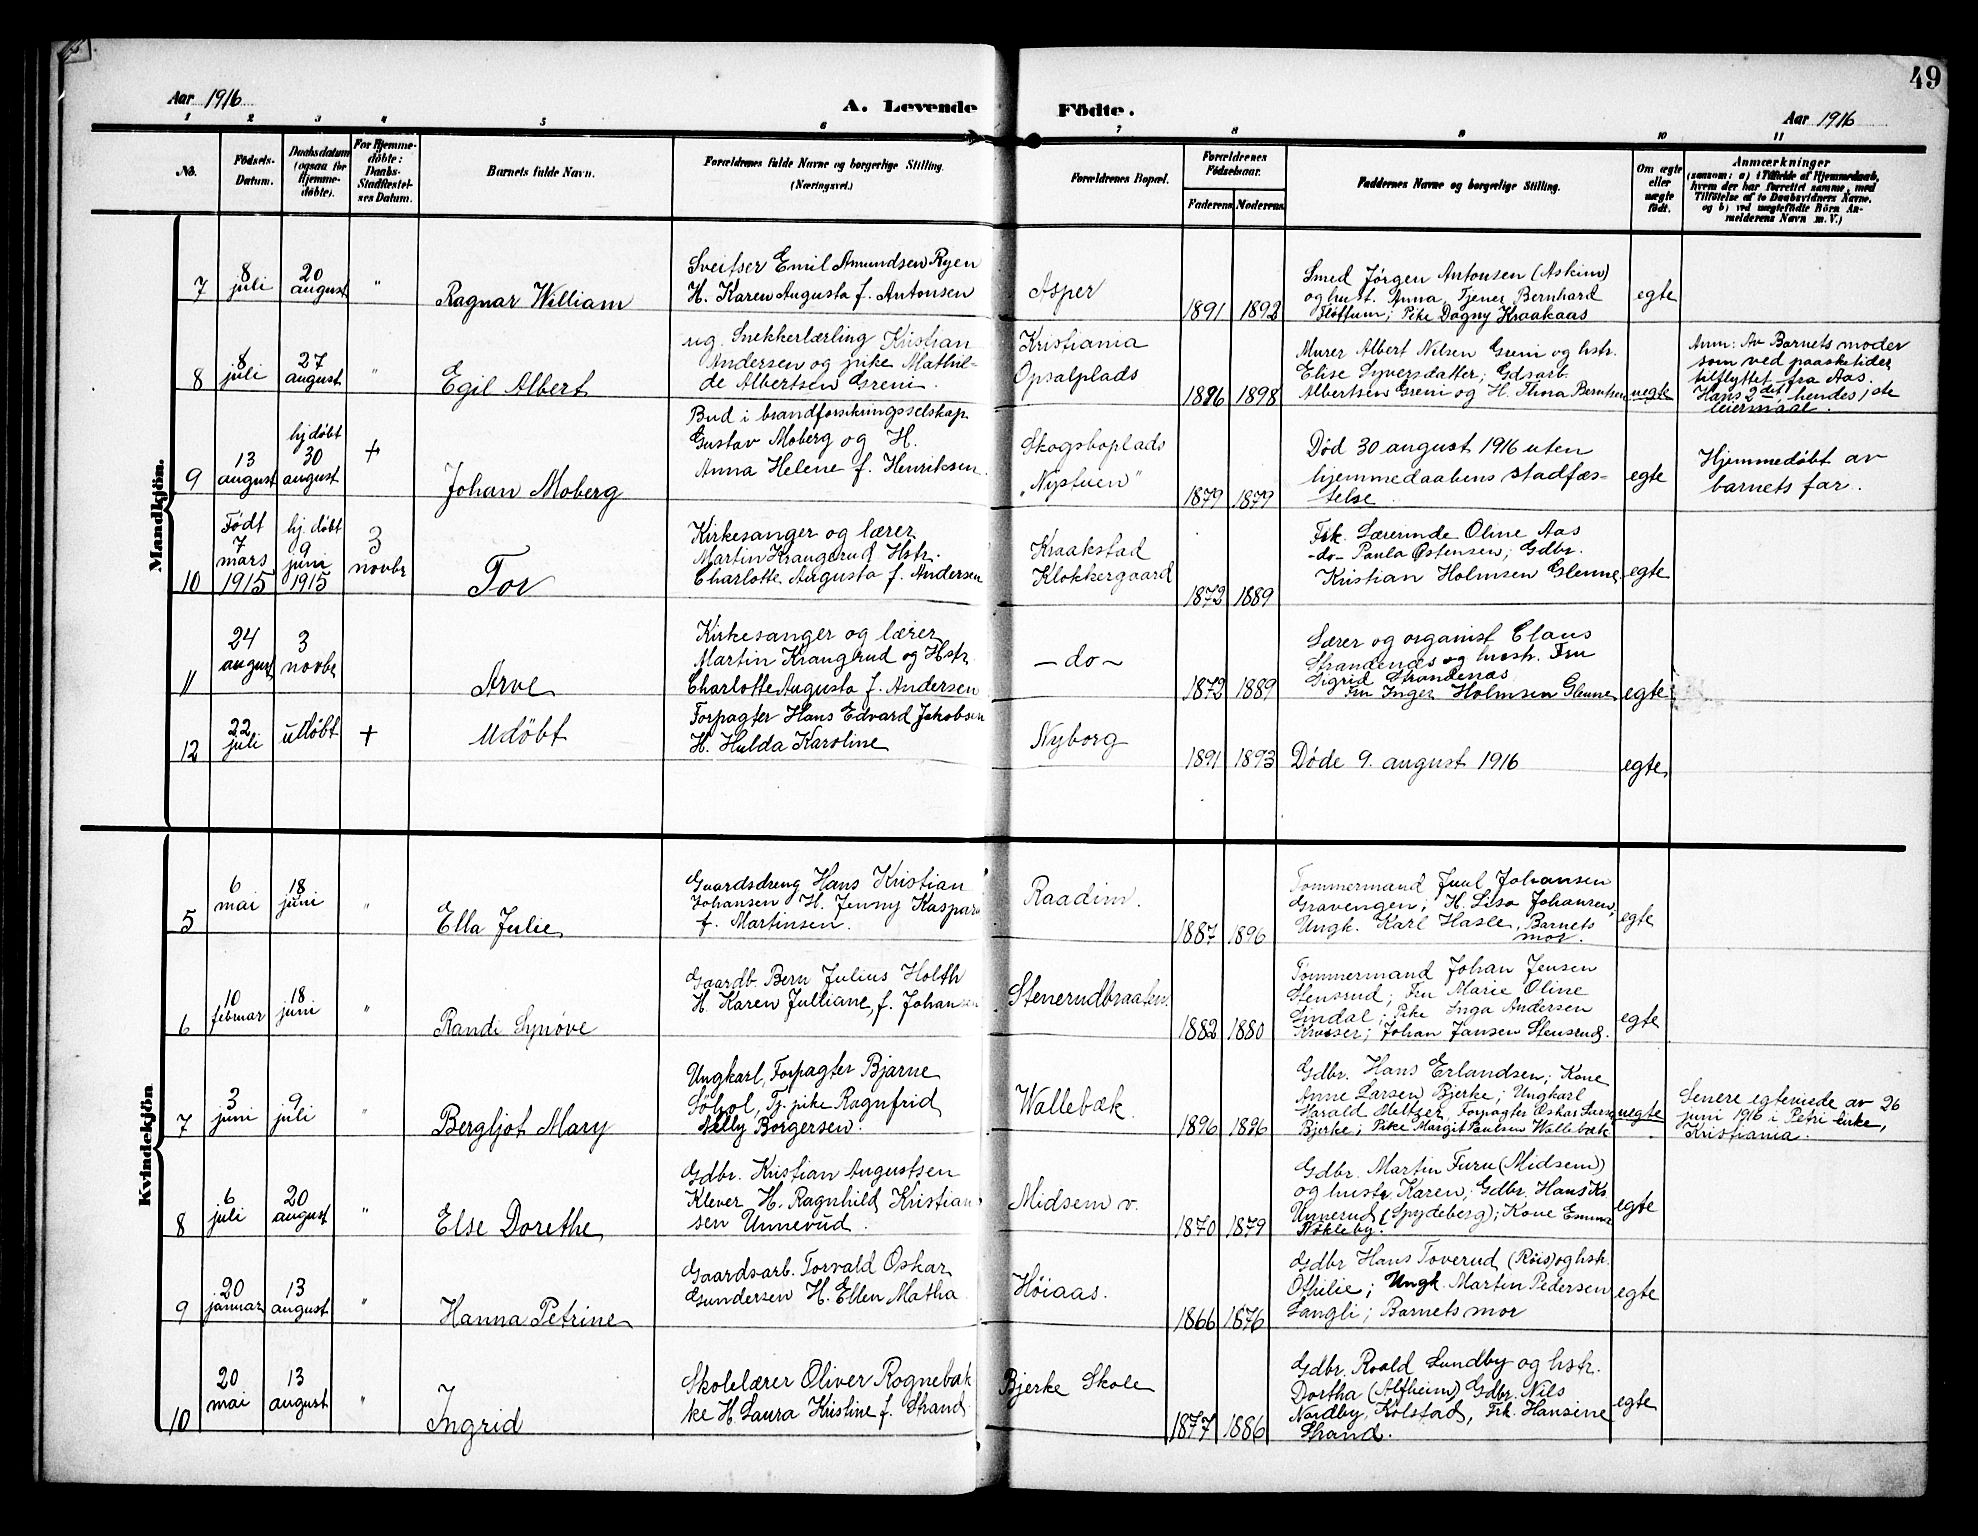 49
Aar 1916
A. Levende Födte.
Aar 1916
1 2 3 4 5 6 7 8 9 10 11
No.
Födsels-
Datum.
Daabsdatum
(ogsaa for
Hjemme-
döbte).
For Hjemme-
döbte:
Daabs-
Stadfæstel-
ses Datum.
Barnets fulde Navn.
Forældrenes fulde Navne og borgerlige Stilling.
(Næringsvei.)
Forældrenes Bopæl.
Forældrenes
Födselsaar.
Faderens
Moderens
Faddernes Navne og borgerlige Stilling.
Om ægte
eller
uægte
födt.
Anmærkninger
(saasom: a) i Tilfælde af Hjemmedaab,
hvem der har forrettet samme, med
Tilföielse af to Daabsvidners Navne,
og b) ved uægtefödte Börn An-
melderens Navn m. V.)
Mandkjön.
7
8
juli
20
august
"
Ragnar William
Sveitser Emil Amundsen Ryen
H. Karen Augusta f. Antonsen
Asper
1891
1892
Smed Jørgen Antonsen (Askim)
og hust. Anna, Tjener Bernhard
Pike Dagny Kraakaas
egte
8
8
juli
27
august
"
Egil Albert
ug. Snekkerlærling Kristian
Andersen og pike Mathil-
de Albertsen Greni.
Kristiania
Opsalplads
1896
1898
Murer Albert Nilsen Greni og hstr.
Elise Syversdatter; Gdsarb.
Albertsen Greni og H. Thina Berntsen
uegte
Anm: Av Barnets moder
som ved paasketider
tilflyttet fra Aas.
Hans 2det, hendes 1ste
leiermaal.
9
13
august
hj døbt
30
august
+
Johan Moberg
Bud i brandforsikringsselskap
Gustav Moberg og H.
Anna Helene f. Henriksen.
Skogsboplads
"Nystuen"
1879
1879
Død 30 august 1916 uten
hjemmedaabens stadfæs-
telse.
egte
Hjemmedøbt av
barnets far.
10
Født
7
mars
1915
hj døbt
9
juni
1915
3
novbr
Tor
Kirkesanger og lærer
Martin Krangsrud Hstr.
Charlotte Augusta f. Andersen
Kraakstad
Klokkergaard
1872
1889
Frk. Lærerinde Oline Aas
-do- Paula Østensen; Gdbr.
Kristian Holmsen Glenne
egte
11
24
august
3
novbr
Arve
Kirkesanger og lærer
Martin Krangsrud og Hstr
Charlotte Augusta f. Andersen
-do-
1872
1889
Lærer og organist Claus
Strandenæs og hustr. Fru
Sigrid Strandenæs
Fru Inger Holmsen Glenne
egte
12
22
juli
udøbt
+
Udøbt
Forpagter Hans Edvard Jakobsen
H. Hulda Karoline
Nyborg
1891
1893
Døde 9. august 1916
egte
Kvindekjön
5
6
mai
18
juni
"
Ella Julie
Gaardsdreng Hans Kristian
Johansen H. Jenny Kaspara
f. Martinsen.
Raadim.
1887
1896
Tømmermand Juul Johansen
Gravengen; H. Lisa Johansen,
Ungk. Karl Hasle, Barnets
mor.
egte
6
10
februar
18
juni
"
Randi Synøve
Gaardb. Bern Julius Holth
H. Karen Julliane f. Johansen
Stenerudbraaten.
1882
1880
Tømmermand Johan Jensen
Stensrud; Fru Marie Oline
Lindal; Pike Inga Andersen
Kroser; Johan Jansen Stensrud.
egte
7
3
juni
9
juli
"
Bergljot Mary
Ungkarl, Forpagter Bjarne
Søhol, Tj. pike Ragnfrid
Nelly Borgersen.
Wallebæk.
1896
1896
Gdbr. Hans Erlandsen; Kone
Anne Larsen Bjerke; Ungkarl
Harald Meltzer, Forpagter Oskar Larsen
Bjerke; Pike Margit Paulsen Wallebæk
uegte
Senere egteviede av 26
juni 1916 i Petri kirke,
Kristiania.
8
6
juli
20
august
"
Else Dorethe
Gdbr. Kristian Augustsen
Klever H. Ragnhild Kristian-
sen Unnerud.
Midsem v.
1870
1879
Gdbr. Martin Furu (Midsem)
og hustr Karen; Gdbr. Hans Kr.
Unnerud (Spydeberg); Kone Emma
Nøkleby.
egte
9
20
januar
13
august
"
Hanna Petrine
Gaardsarb. Torvald Oskar
Gundersen H. Ellen Matha
Høiaas.
1866
1876
Gdbr Hans Toverud (Røis) og hstr.
Othilie; Ungk. Martin Pedersen
Langli; Barnets mor
egte
10
20
mai
13
august
"
Ingrid
Skolelærer Oliver Rognebæk
ke H. Laura Kristine f. Strand
Bjerke Skole
1877
1886
Gdbr. Roald Lundby og hstr.
Dortha (Alfheim) Gdbr. Nils
Nordby, Kolstad, Frk. Hansine
Strand.
egte